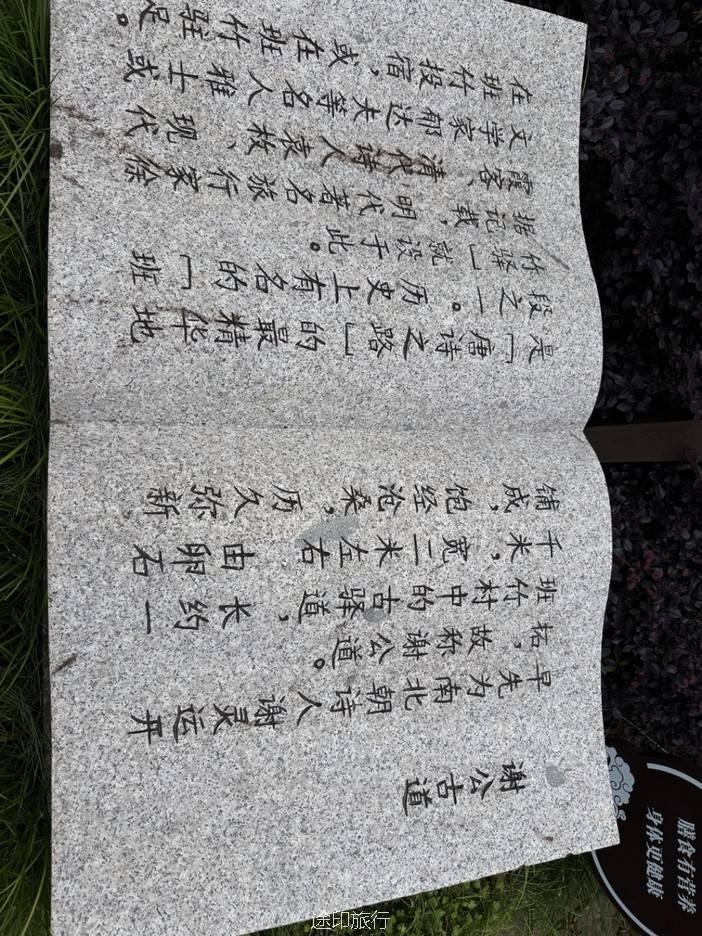 谢公古道
早先为南北朝诗人谢灵运开
拓，故称谢公道。
班竹村中的古驿道，长约一
千米，宽二米左右 由卵石
铺成，饱经沧桑，历久弥新
是「唐诗之路」的最精华地
段之一。历史上有名的「班
竹驿」就设于此。
据记载，明代著名旅行家徐
霞客、清代诗人袁枚、现代
文学家郁达夫等名人雅士或
在班竹投宿，或在班竹驻足。
膳食有营养
身体更健康
途印旅行